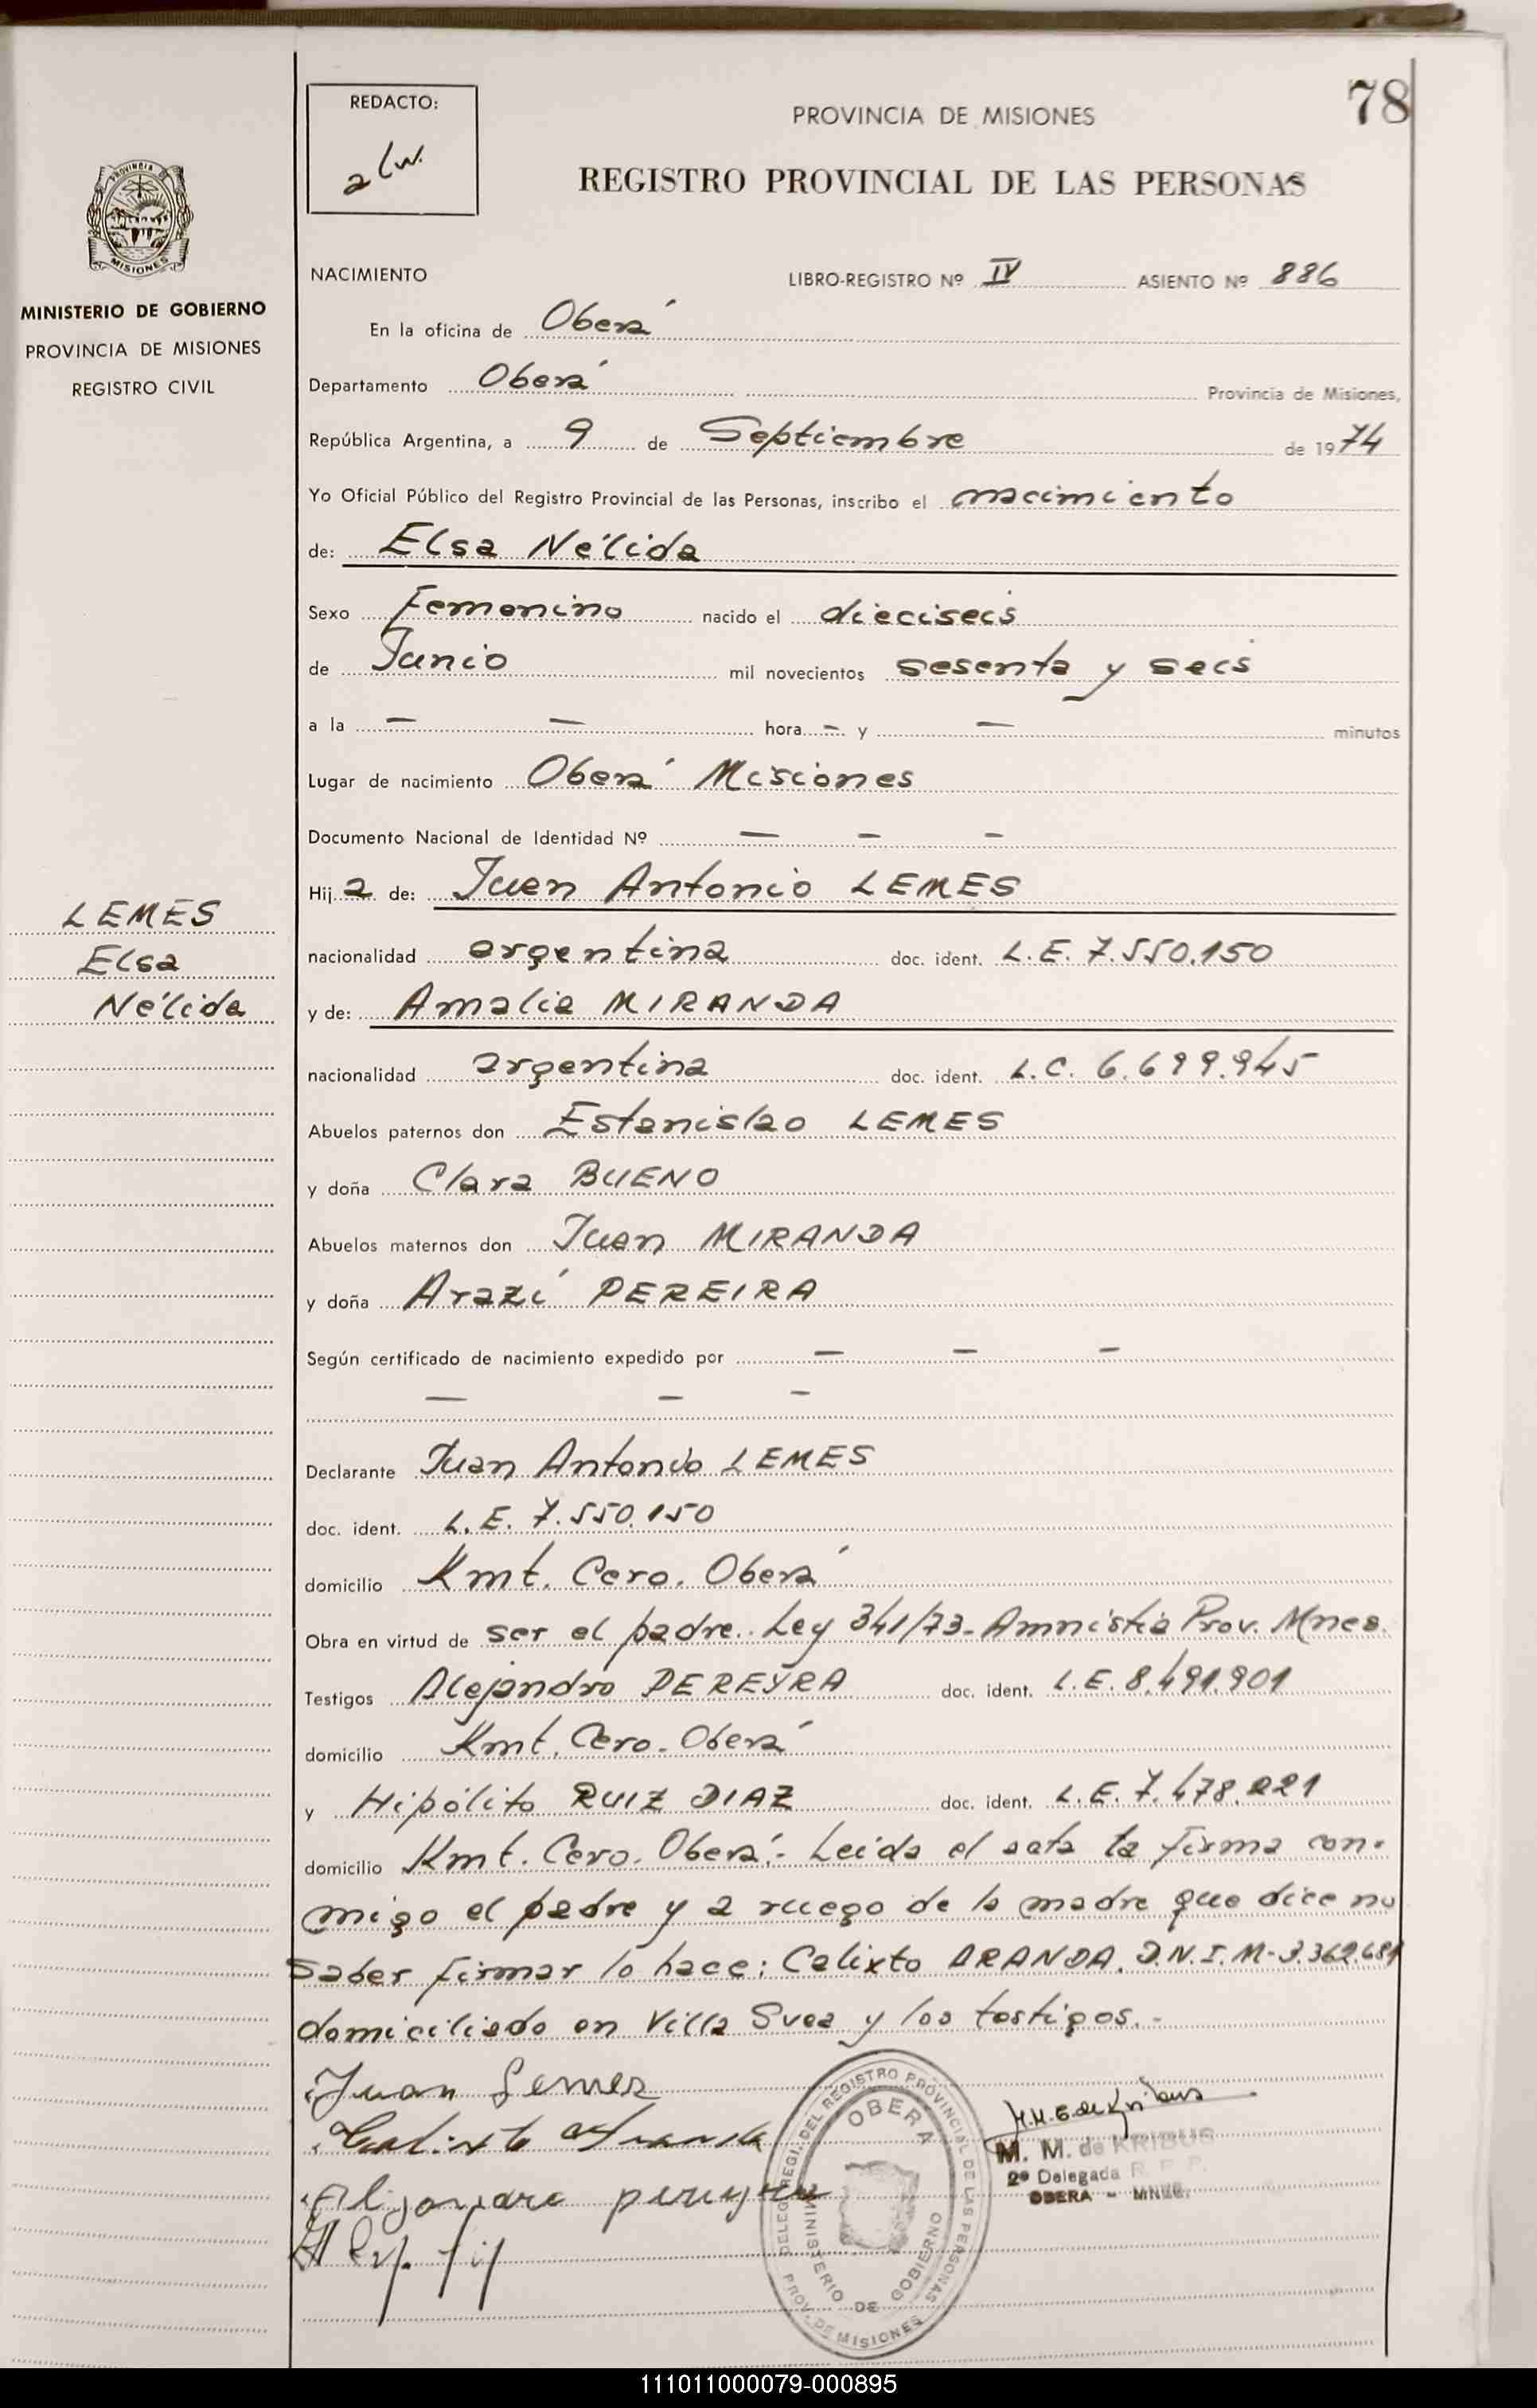 78
REDACTO:
PROVINCIA DE MISIONES
REGISTRO PROVINCIAL DE LAS PERSONAS
PROVINCIA
MISIONES
MINISTERIO DE GOBIERNO
PROVINCIA DE MISIONES
REGISTRO CIVIL
NACIMIENTO LIBRO-REGISTRO Nº IV ASIENTO Nº 886
En la oficina de Oberá
Departamento Oberá Provincia de Misiones,
República Argentina, a 9 de Septiembre de 1974
Yo Oficial Público del Registro Provincial de las Personas, inscribo el nacimiento
de: Elsa Nélida
Sexo Femenino nacido el dieciseis
de Junio mil novecientos sesenta y seis
a la — — hora – y — minutos
Lugar de nacimiento Oberá Misiones
Documento Nacional de Identidad Nº — – –
Hija de: Juan Antonio LEMES
LEMES
Elsa
Nélida
nacionalidad argentina doc. ident. L.E. 7.550.150
y de: Amalia MIRANDA
nacionalidad argentina doc. ident. L.C. 6.699.945
Abuelos paternos don Estanislao LEMES
y doña Clara BUENO
Abuelos maternos don Juan MIRANDA
y doña Arazí PEREIRA
Según certificado de nacimiento expedido por — – –
— – –
Declarante Juan Antonio LEMES
doc. ident. L.E. 7.550.150
domicilio Kmt. Cero. Oberá
Obra en virtud de ser el padre. Ley 341/73- Amnistia Prov. Mnes.
Testigos Alejandro PEREYRA doc. ident. L.E. 8.491.901
domicilio Kmt. Cero. Oberá
y Hipólito RUIZ DIAZ doc. ident. L.E. 7.478.221
domicilio Kmt. Cero. Oberá.- Leida el acta la firma con-
migo el padre y a ruego de la madre que dice no
saber firmar lo hace: Calixto ARANDA. D.N.I.M-3.362.681
domiciliado en Villa Svea y los testigos.-
Juan Lemes
Calixto Aranda
Alejandro pereyra
DELEG. REGI. DEL REGISTRO PROVINCIAL DE LAS PERSONAS
OBERA
MINISTERIO DE GOBIERNO
PROV. DE MISIONES
M. M. de KRIBUS
2ª Delegada R. P. P.
OBERA - MNES.
111011000079-000895